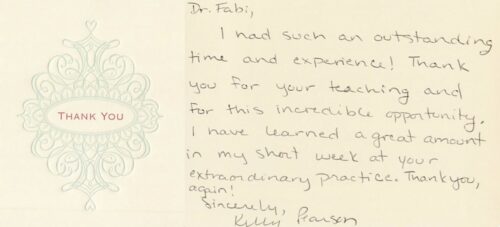 THANK YOU
Dr. Fabi,
I had such an outstanding
time and experience! Thank
you for your teaching and
for this incredible opportunity.
I have learned a great amount
in my short week at your
extraordinary practice. Thank you,
again!
Sincerely,
Kelly Pearson